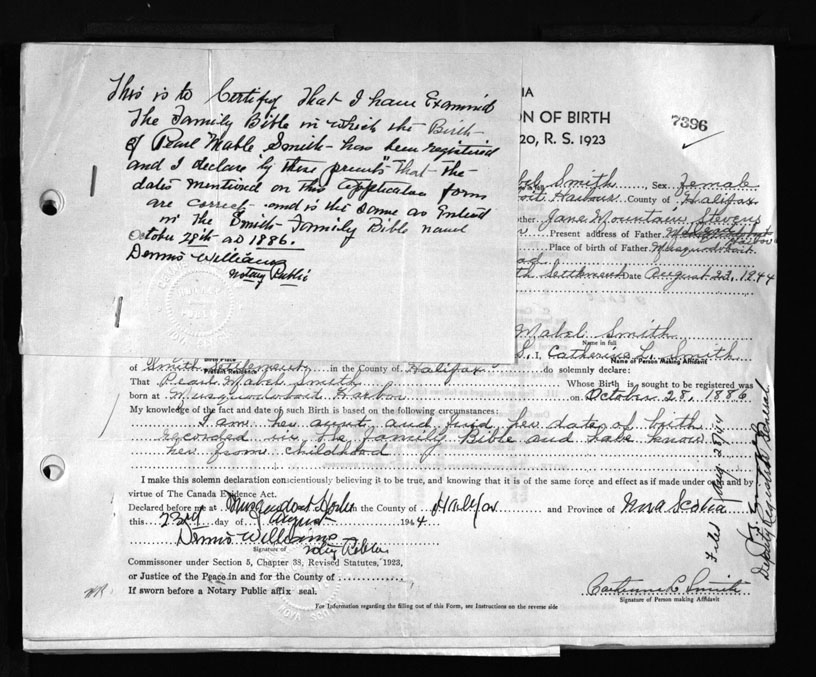 This is to Certify That I have Examined
The Family Bible in which the Birth
of Pearl Mable Smith has been registered
and I declare by these presents That the
dates mentioned on this Application form
are correct and is the same as Entered
in the Smith Family Bible namel
October 28th AD 1886.
Dennis Williams
Notary Public
IA
ON OF BIRTH
20, R. S. 1923
7396
Smith Sex Female
Harbour County of Halifax
other Jane Mountain Stevens
Present address of Father
Place of birth of Father Musquodoboit
Settlement Date August 22, 1944
Mabel Smith
Name in full
I, Catherine L. Smith
Name of Person Making Affidavit
of Smith Settlement in the County of Halifax do solemnly declare:
Present Residence
That Pearl Mabel Smith Whose Birth is sought to be registered was
born at Musquodoboit Harbor on October 28, 1886
My knowledge of the fact and date of such Birth is based on the following circumstances:
I am her aunt and find her date of birth
recorded in the family Bible and have know
her from childhood
I make this solemn declaration conscientiously believing it to be true, and knowing that it is of the same force and effect as if made under oath and by
virtue of The Canada Evidence Act.
Declared before me at Musquodoboit Harbor in the County of Halifax and Province of Nova Scotia
this 23rd day of August 1944
Dennis Williams
Signature of Notary Public
Commissioner under Section 5, Chapter 38, Revised Statutes, 1923,
or Justice of the Peace in and for the County of
If sworn before a Notary Public affix seal.
Catherine L. Smith
Signature of Person making Affidavit
For Information regarding the filling out of this Form, see Instructions on the reverse side
Filed Aug 28/44
Deputy Registrar General